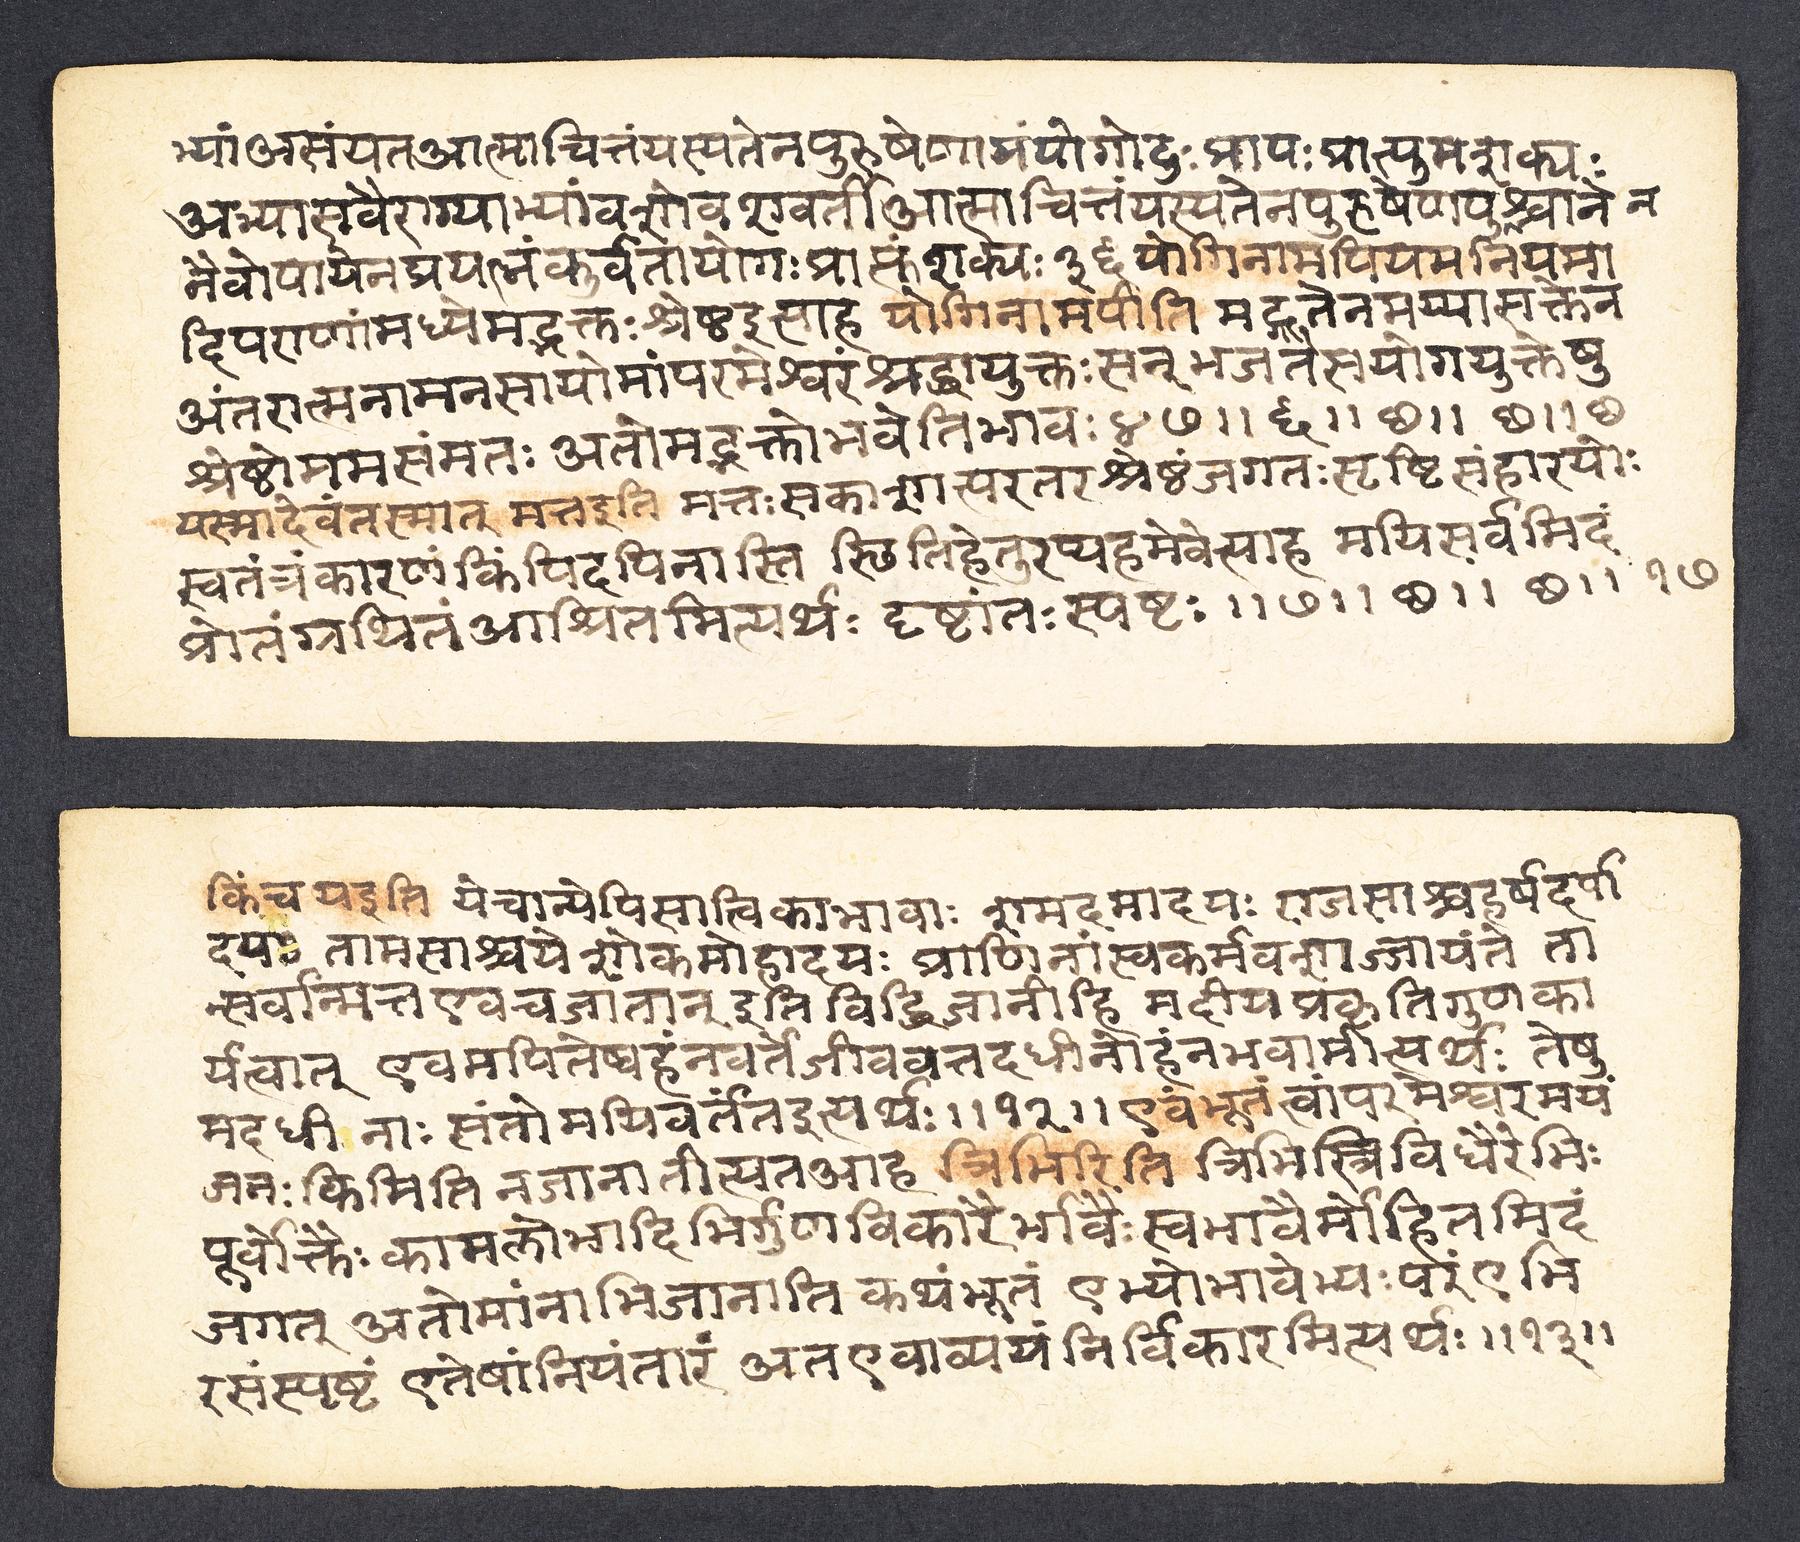 भ्यांअसंयतआत्माचित्तंयस्यतेनपुरुषेणायंयोगोदुःप्रापः प्राप्तुमशक्यः
अभ्यासवैराग्याभ्यांवशोवशवर्तीआत्माचित्तंयस्यतेनपुरुषेणपुश्चानेन
नैवोपायेनप्रयत्नंकुर्वतायोगःप्राप्तुंशक्यः ३६ योगिनामपियमनियमा
दिपराणांमध्येमद्भक्तःश्रेष्ठइत्याह योगिनामपीति मद्गतेनमय्यासक्तेन
अंतरात्मनामनसायोमांपरमेश्वरंश्रद्धायुक्तःसन् भजतेसयोगयुक्तेषु
श्रेष्ठोममसंमतः अतोमद्भक्तोभवेतिभावः ४७॥ ६॥ छ॥ छ॥छ
यस्मादेवंतस्मात् मत्तइति मत्तःसकाशात्परतरश्रेष्ठंजगतःसृष्टिसंहारयोः
स्वतंत्रंकारणंकिंपिदपिनास्ति स्छितिहेतुरप्यहमेवेत्याह मयिसर्वमिदं
प्रोतंग्रथितंआश्रितमित्यर्थः दृष्टांतःस्पष्टः ॥७॥ छ॥ छ॥ १७
किंच यइति येचान्येपिसात्विकाभावाः शमदमादयः राजसाश्चहर्षदर्पा
दयः तामसाश्चयेशोकमोहादयः प्राणिनांस्वकर्मवशाज्जायंते ता
न्सर्वान्मित्तएवचजातान् इति विद्धिजानीहि मदीयप्रकृतिगुणका
र्यत्वात् एवमपितेष्वहंनवर्तेजीववत्तदधीनोहंनभवामीत्यर्थः तेषु
मदधी नाः संतोमयिवर्तंतइत्यर्थः॥१२॥एवंभूतंत्वांपरमेश्वरमयं
जनः किमिति नजानातीत्यतआह त्रिभिरिति त्रिभिस्त्रिविधैरेभिः
पूर्वोक्तैः कामलोभादिभिर्गुणविकारैर्भावैः स्वभावैर्मोहितमिदं
जगत् अतोमांनाभिजानाति कथंभूतं एभ्योभावेभ्यःपरं एभि
रसंस्पृष्टं एतेषांनियंतारं अतएवाव्ययंनिर्विकारमित्यर्थः॥१३॥